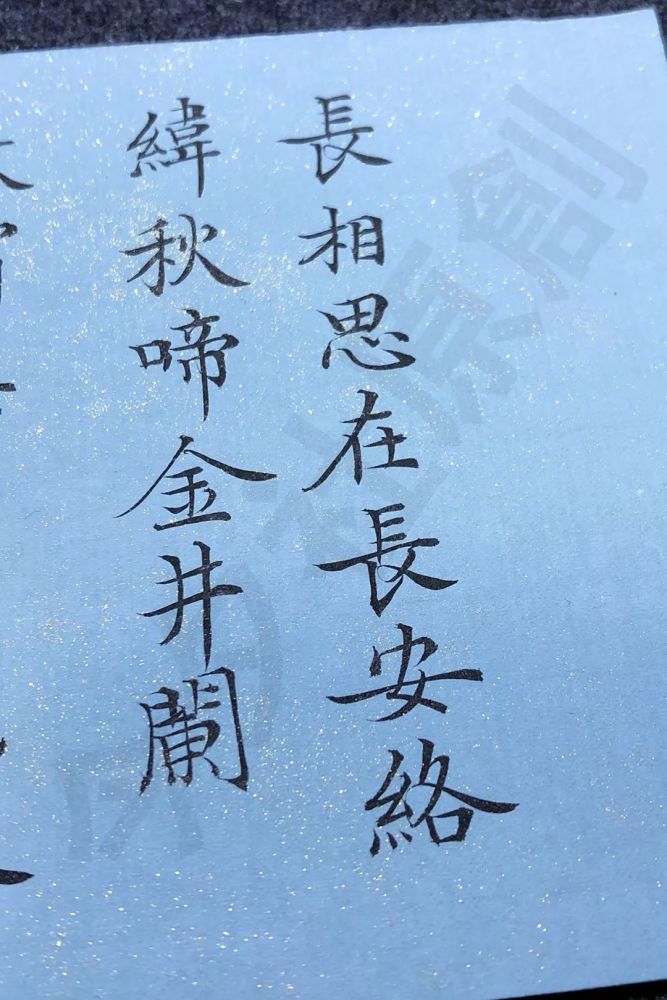 長相思在長安絡
緯秋啼金井闌